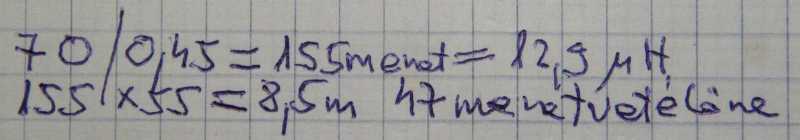 70/0,45 = 155 menet = 12,9 µH
155 x 55 = 8,5m 47 menetvetélőne